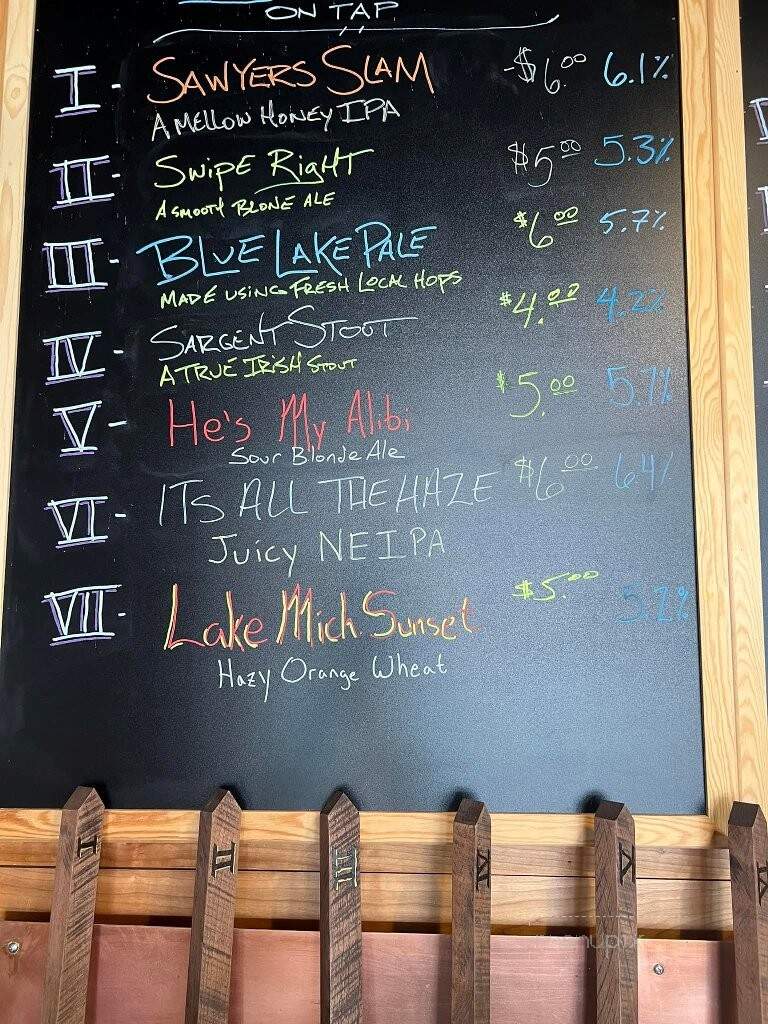 ON TAP
I - SAWYERS SLAM -$6.00 6.1%
A MELLOW HONEY IPA
II - SWIPE RIGHT $5.00 5.3%
A SMOOTH BLONE ALE
III - BLUE LAKE PALE $6.00 5.7%
MADE USING FRESH LOCAL HOPS
IV - SARGENT STOUT $4.00 4.2%
A TRUE IRISH STOUT
V - He's My Alibi $5.00 5.7%
Sour Blonde Ale
VI - ITS ALL THE HAZE $6.00 6.4%
Juicy NEIPA
VII - Lake Mich Sunset $5.00 5.2%
Hazy Orange Wheat
I II III IV V